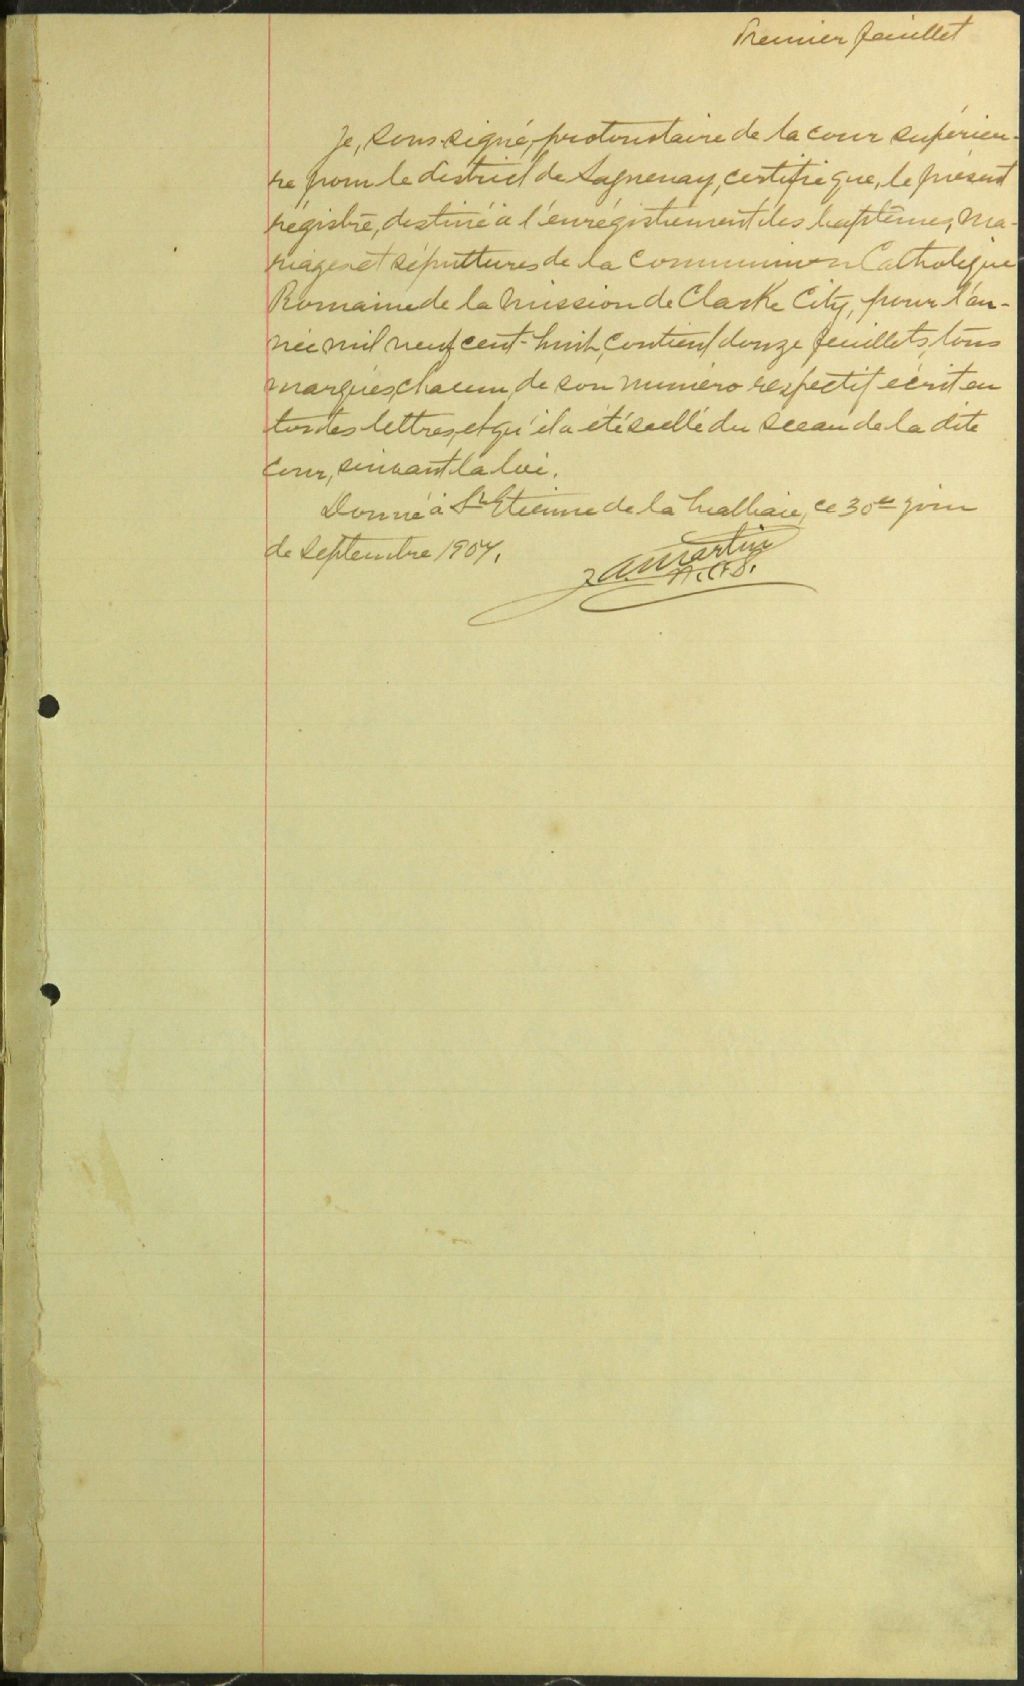 Premier feuillet
Je, sous-signé, protonotaire de la cour supérieu-
re pour le district de Saguenay, certifie que, le présent
régistre, destiné à l'enrégistrement des baptêmes, ma-
riages et sépultures de la Communion Catholique
Romaine de la Mission de Clarke City, pour l'an-
née mil neuf cent-huit, contient douze feuillets, tous
marqués, chacun, de son numéro respectif écrit en
toutes lettres, et qu'il a été scellé du sceau de la dite
cour, suivant la loi.
Donné à St Etienne de la Malbaie, ce 30e jour
de septembre 1907.
Martin